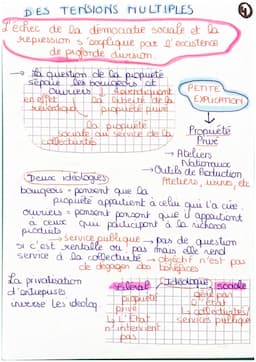 DES TENSIONS MULTIPLES
L'échec de la démocratie sociale et la
répression s'explique par l'existence
de profonde division.
→ La question de la propriété
sépare les bourgeois et
ouvriers
Revendiquent
en effet la liberté de la
propriété privé
la propriété
sociale au service de la
collectivités
PETITE
EXPLICATION
Propriété
Privé
→ Ateliers
Nationaux
→ Outils de Production
Ateliers, usines, etc
Deux idéologies
bourgeois = pensent que la
propriété appartient à celui qui l'a crée.
ouvriers = pensent que il appartient
à ceux qui participent à la richesse
produits
→ service publique → pas de question
si c'est rentable ou pas mais elle rend
service à la collectivité → objectif n'est pas
de dégager des bénéfices
La privatisation
d'entreprises
inverse les idéolog
libéral
Idéologie
sociale
propriété
privé
↳ L'Etat
n'intervient
pas
géré par
l'état
↳ collectivités/
services publique